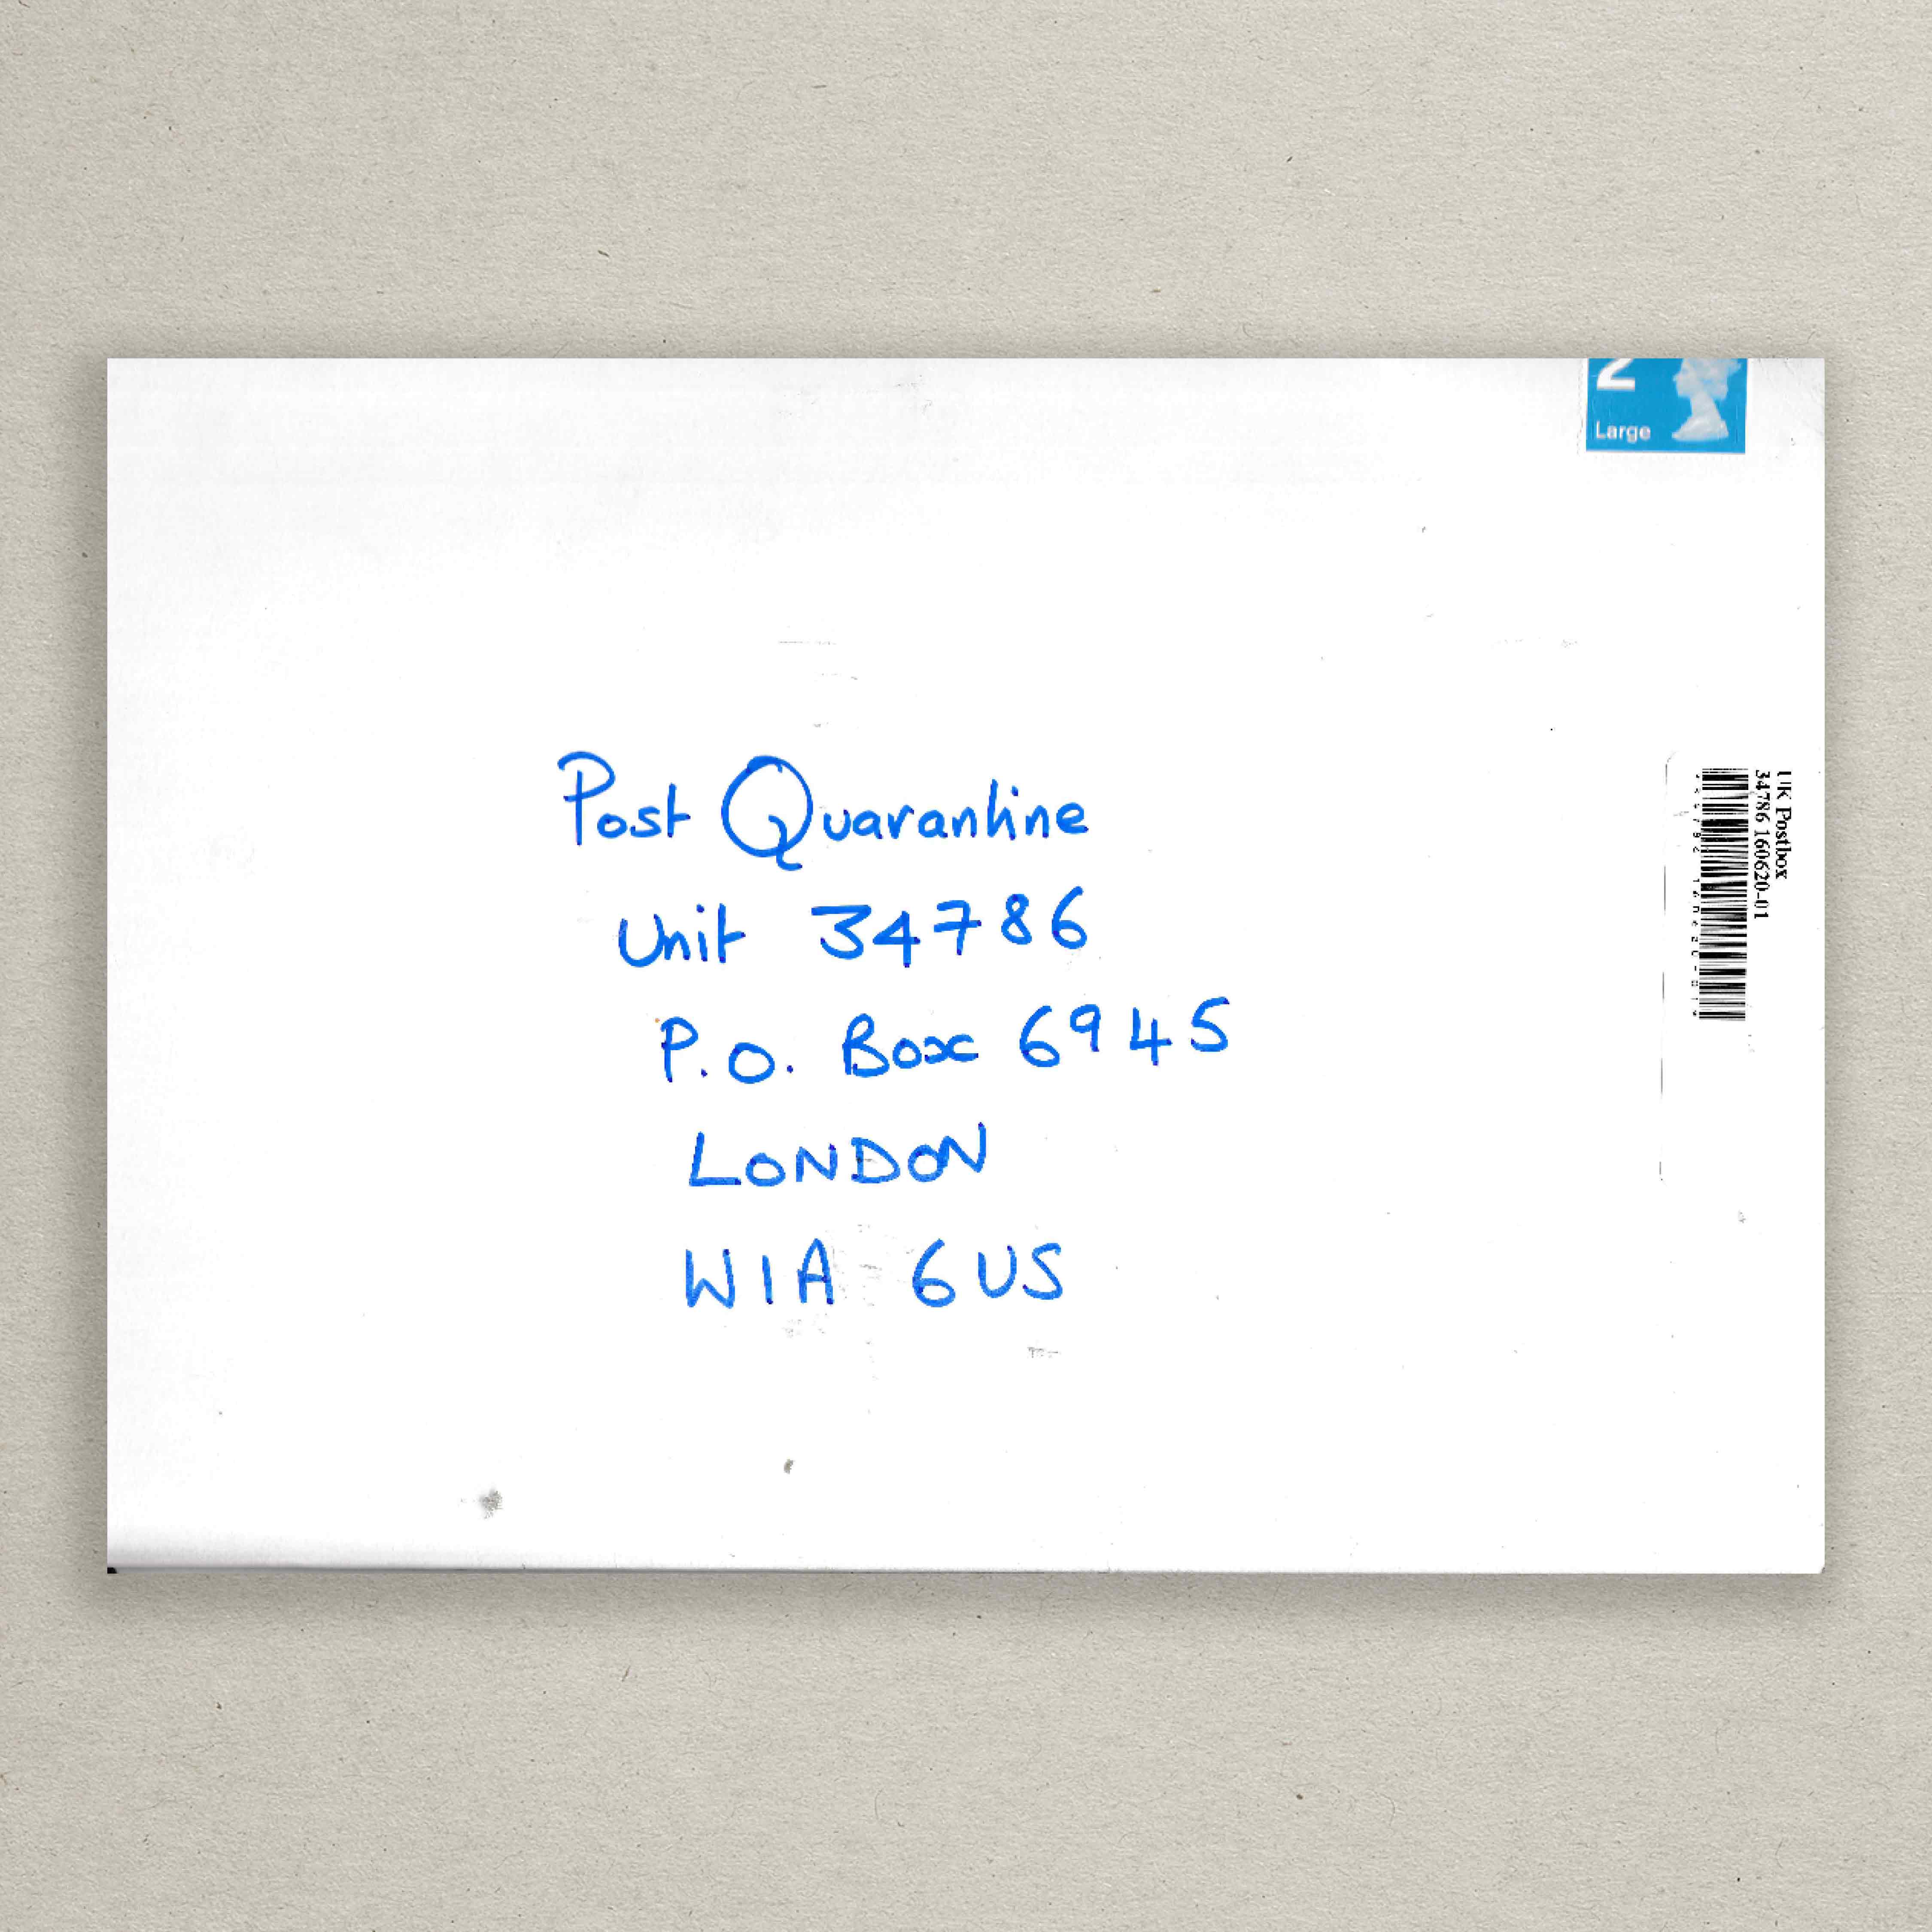 2
Large
Post Quarantine
Unit 34786
P.O. Box 6945
LONDON
W1A 6US
UK Postbox
34786 160620-01